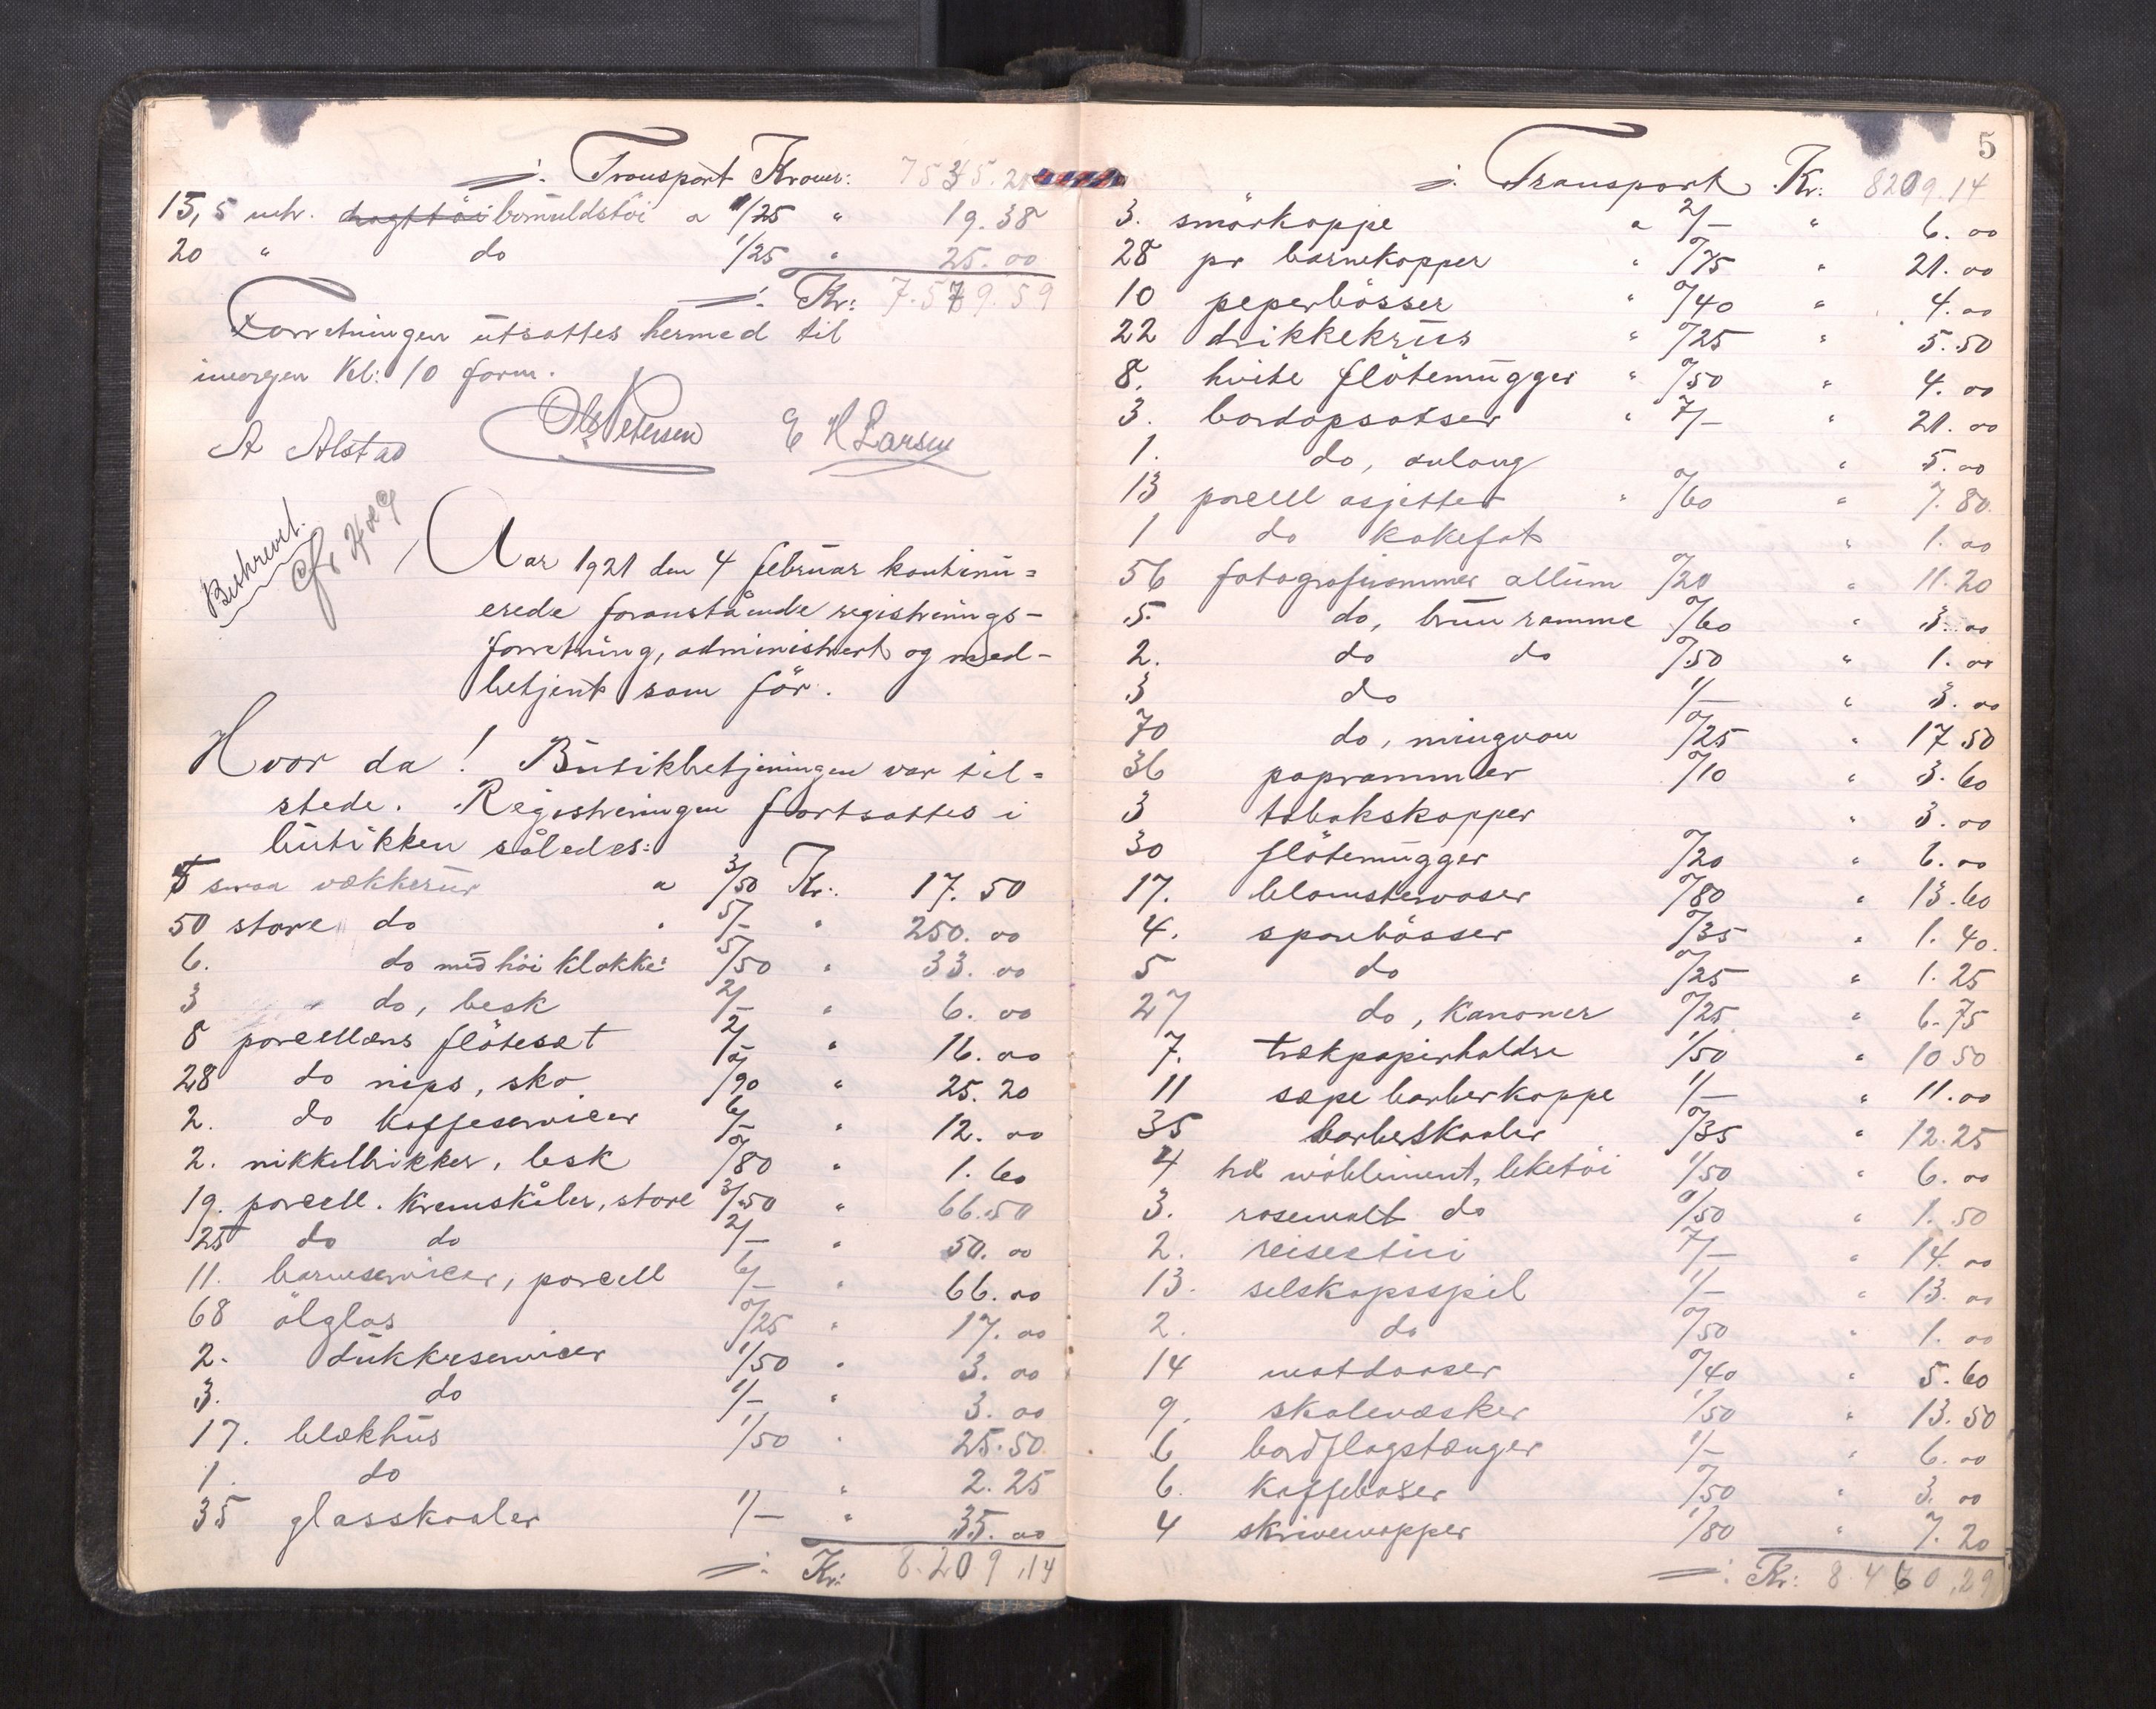 Transport Kroner: 7535.21
15,5 mtr. dragttöi bomuldstöi a 1/25 " 19.38
20 " do 1/25 " 25.00
Kr: 7.579.59
Forretningen utsattes hermed til
imorgen Kl: 10 form.
A Alstad Ole Petersen E H Larsen
Beskrevet.
Aar 1921 den 4 februar kontinu=
erede foranstående registrerings-
forretning, administrert og med-
betjent som för.
Hvor da! Butikbetjeningen var til=
stede. Registreringen fortsattes i
butikken således:
5 smaa vækkerur a 3/50 Kr: 17.50
50 store do " 5/- " 250.00
6. do med höi klokke 5/50 " 33.00
3 " do, besk 2/- " 6.00
8 porcellæns flötesæt 2/- " 16.00
28 do nips, sko 0/90 " 25.20
2. do kaffeservicer 6/- " 12.00
2. nikkelbrikker, besk 0/80 " 1.60
19. porcell. kremskåler, store 3/50 " 66.50
25 do do 2/- " 50.00
11. barneservicer, porcell 6/- " 66.00
68 ölglas 0/25 " 17.00
2. dukkeservicer 1/50 " 3.00
3. do 1/- " 3.00
17. blækhus 1/50 " 25.50
1. do " 2.25
35 glasskaaler 1/- " 35.00
Kr: 8.209,14
5
Transport Kr: 8209.14
3. smörkoppe a 2/- " 6.00
28 pr barnekopper " 0/75 " 21.00
10 peperbösser " 0/40 " 4.00
22 drikkekrus " 0/25 " 5.50
8. hvite flötemugger " 0/50 " 4.00
3. bordopsatser " 7/- " 21.00
1. do, avlang " 5.00
13 porcell asjetter " 0/60 " 7.80
1 do kakefat " 1.00
56 fotografirammer allum 0/20 " 11.20
5. do, brun ramme 0/60 " 3.00
2. do do 0/50 " 1.00
3 do 1/- " 3.00
70 do, mingnon 0/25 " 17.50
36 paprammer 0/10 " 3.60
3 tobakskopper " 3.00
30 flötemugger 0/20 " 6.00
17. blomstervaser 0/80 " 13.60
4. sparebösser 0/35 " 1.40
5 do 0/25 " 1.25
27 do, Kanoner 0/25 " 6.75
7. trækpapirholdre 1/50 " 10 50
11 sæpe barberkoppe 1/- " 11.00
35 barberskaaler 0/35 " 12.25
4 möbliment, leketöi 1/50 " 6.00
3. rosemalt do 0/50 " 1.50
2. reiseetui 7/- " 14.00
13. selskapsspil 1/- " 13.00
2. do 0/50 " 1.00
14 matdaaser 0/40 " 5.60
9. skolevæsker 1/50 " 13.50
6 bordflagstænger 1/- " 6.00
6. kaffebokser 0/50 " 3.00
4 skrivemapper 1/80 " 7.20
Kr: 8.460,29